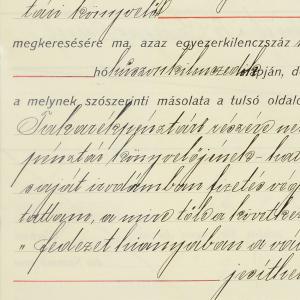 tári könyvelőt
megkeresésére ma, azaz egyezerkilenczszáz
hó huszonkilenczedik napján, d
a melynek szószerinti másolata a tulsó oldalo
Takarékpénztár részére
pénztár könyvelőjének
saját irodámban fizetés vég
tattam, a mire tőle a követke
„ fedezet hiányában a vá